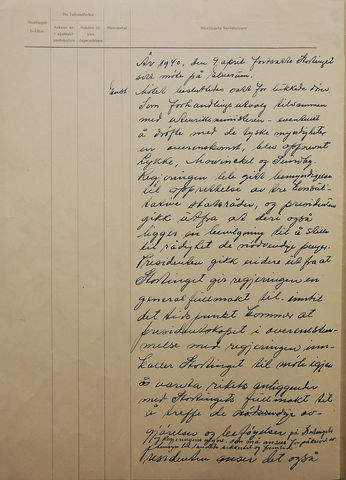 Stortingets Beslutninger
År 1940, den 9 april fortsatte Stortinget
sitt møte på Elverum.
Møtet besluttedes satt for lukkede dører.
Som forhandlingsutvalg til sammen
med utenriksministeren - eventuelt
å drøfte med de tyske myndigheter
en overenskomst, blev opnevnt
Lykke, Mowinckel og Sundby.
Regjeringen ble gitt bemyndigelse
til opprettelse av tre konsul-
tative statsråder, og presidenten
gikk ut fra at deri også
ligger en bevilgning til å stille
til rådighet de nødvendige penger.
Presidenten gikk videre ut fra at
Stortinget gir regjeringen en
general fullmakt til - inntil
det tidspunkt kommer at
presidentskapet i overensstem-
melse med regjeringen inn-
kaller Stortinget til møte igjen
å vareta rikets anliggender
med Stortingets fullmakt til
å treffe de nødvendige av-
gjørelser og beføyelser på Stortingets
og Regjeringens vegne, som må ansees for påkrevd av
hensyn til landets sikkerhet og fremtid
Presidenten anser det også